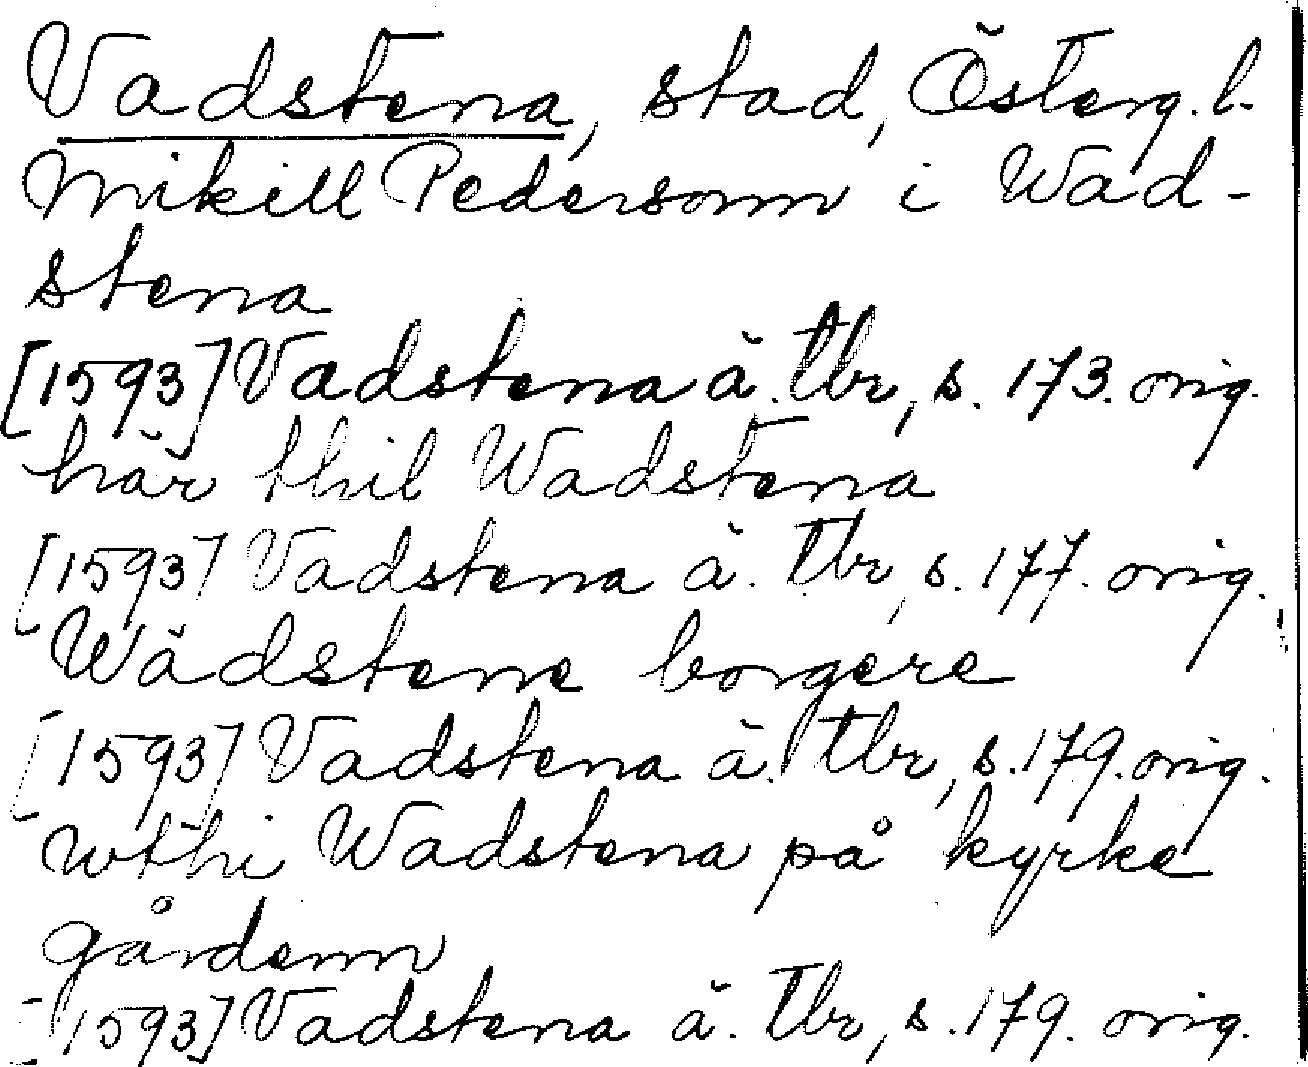 Vadstena, stad, Österg.l.
Mikill Pedersonn i Wad-
stena
[1593] Vadstena ä. tbr, s. 173. orig.
här thil Wadstena
[1593] Vadstena ä. tbr, s. 177. orig.
Wädstene borgere
[1593] Vadstena ä. tbr, s. 179. orig.
wthi Wadstena på kyrke
gårdenn
[1593] Vadstena ä. tbr, s. 179. orig.